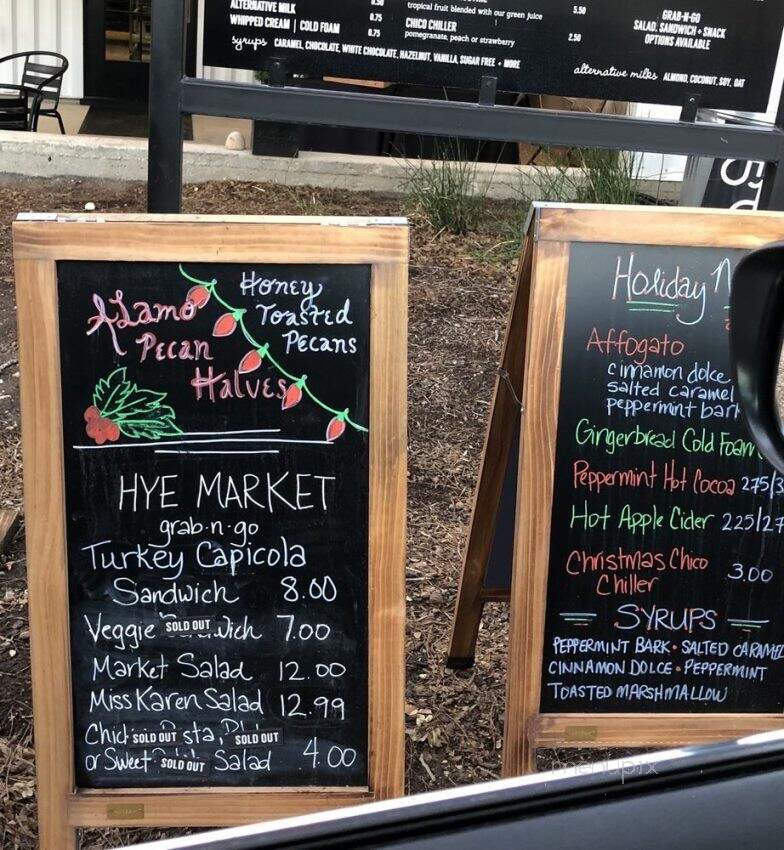 ALTERNATIVE MILK 0.50
WHIPPED CREAM | COLD FOAM 0.75
syrups CARAMEL, CHOCOLATE, WHITE CHOCOLATE, HAZELNUT, VANILLA, SUGAR FREE + MORE
0.75
tropical fruit blended with our green juice 5.50
CHICO CHILLER 2.50
pomegranate, peach or strawberry
GRAB-N-GO
SALAD, SANDWICH + SNACK
OPTIONS AVAILABLE
alternative milks ALMOND, COCONUT, SOY, OAT
Alamo
Pecan
Halves
Honey
Toasted
Pecans
HYE MARKET
grab·n·go
Turkey Capicola
Sandwich 8.00
Veggie SOLD OUT wich 7.00
Market Salad 12.00
Miss Karen Salad 12.99
SOLD OUT sta, SOLD OUT
or Sweet SOLD OUT Salad 4.00
Holiday
Affogato
cinnamon dolce
salted caramel
peppermint bark
Gingerbread Cold Foam
Peppermint Hot Cocoa 2.75/3
Hot Apple Cider 2.25/2.7
Christmas Chico 3.00
Chiller
SYRUPS
PEPPERMINT BARK • SALTED CARAMEL
CINNAMON DOLCE • PEPPERMINT
TOASTED MARSHMALLOW
menupix